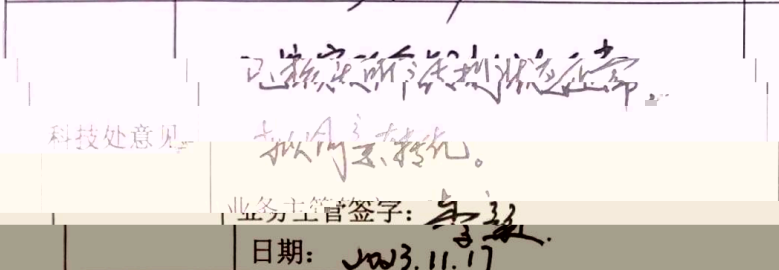 已核实所介专利状态正常。
科技处意见
拟同意转化。
业务主管签字：
日期：2023.11.17